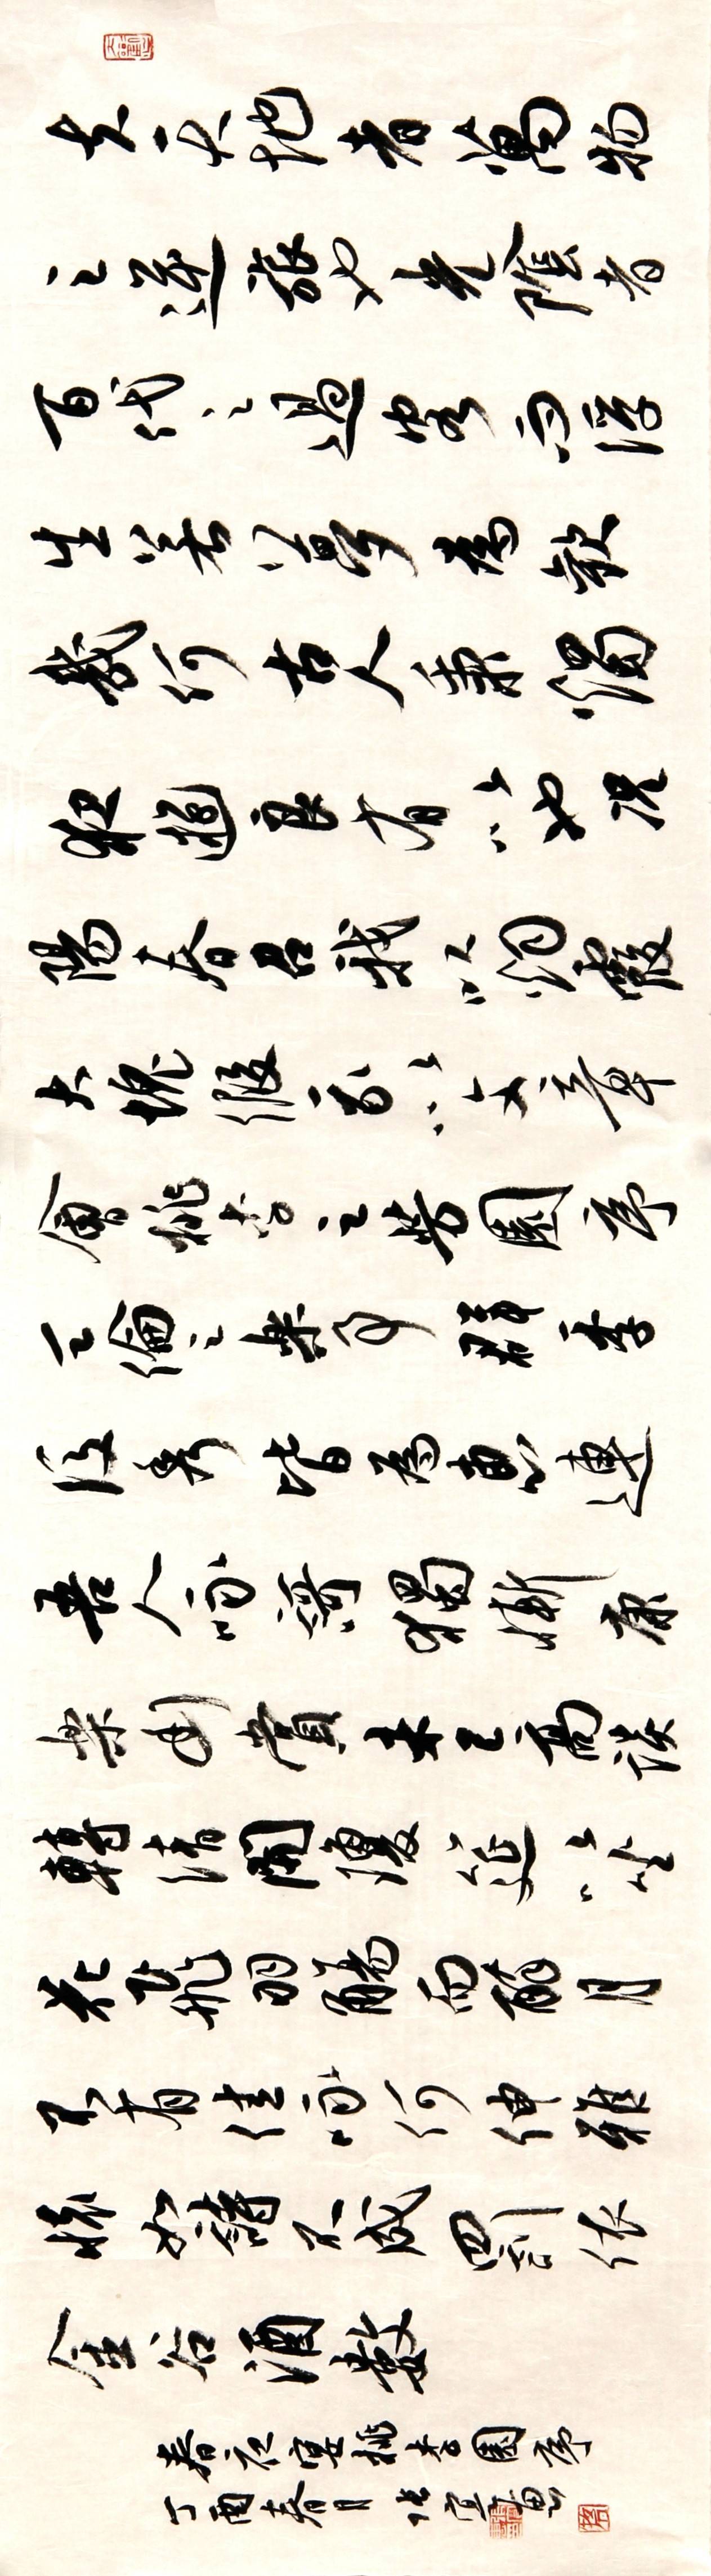 夫天地者萬物
之逆旅也光陰者
百代之過客而浮
生若夢為歡
幾何古人秉燭
夜遊良有以也況
陽春召我以烟霞
大塊假我以文章
會桃李之芳園序
天倫之樂事群季
俊秀皆為惠連
吾人詠歌獨慚康
樂幽賞未已高談
轉清開瓊筵以坐
花飛羽觴而醉月
不有佳詠何伸雅
懷如詩不成罰依
金谷酒數
春夜宴桃李園序
丁酉春日